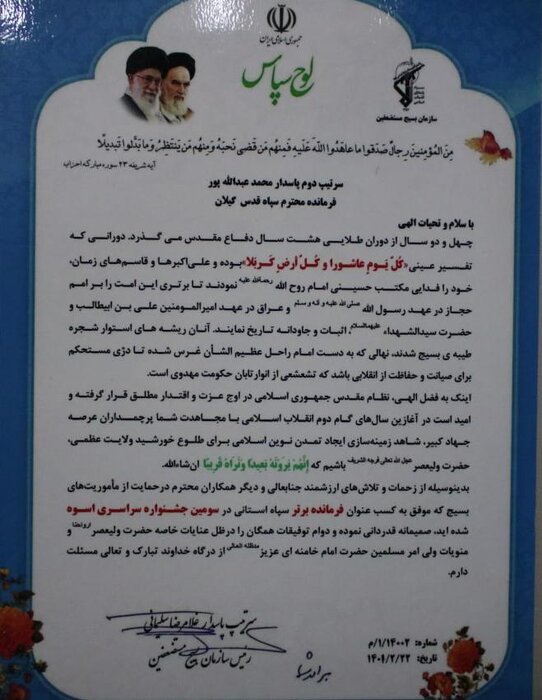 جمهوری اسلامی ایران
لوح سپاس
سازمان بسیج مستضعفین
مِنَ المُؤمِنینَ رِجالٌ صَدَقوا ما عاهَدُوا اللّهَ عَلَیهِ فَمِنهُم مَن قَضی نَحبَهُ وَمِنهُم مَن یَنتَظِرُ وَما بَدَّلوا تَبدیلًا
آیه شریفه ۲۳ سوره مبارکه احزاب
سرتیپ دوم پاسدار محمد عبدالله پور
فرمانده محترم سپاه قدس گیلان
با سلام و تحیات الهی
چهل و دو سال از دوران طلایی هشت سال دفاع مقدس می گذرد. دورانی که
تفسیر عینی «کُلُّ یَومٍ عاشورا و کُلُّ اَرضٍ کَربَلا» بوده و علی‌اکبرها و قاسم‌های زمان،
خود را فدایی مکتب حسینی امام روح الله رحمه‌الله علیه نمودند تا برتری این امت را بر امم
حجاز در عهد رسول الله صلی الله علیه و آله و سلم و عراق در عهد امیرالمومنین علی بن ابیطالب و
حضرت سیدالشهداء علیهم‌السلام، اثبات و جاودانه تاریخ نمایند. آنان ریشه های استوار شجره
طیبه ی بسیج شدند، نهالی که به دست امام راحل عظیم الشأن غرس شده تا دژی مستحکم
برای صیانت و حفاظت از انقلابی باشد که تشعشعی از انوار تابان حکومت مهدوی است.
اینک به فضل الهی، نظام مقدس جمهوری اسلامی در اوج عزت و اقتدار مطلق قرار گرفته و
امید است در آغازین سال‌های گام دوم انقلاب اسلامی با مجاهدت شما پرچمداران عرصه
جهاد کبیر، شاهد زمینه‌سازی ایجاد تمدن نوین اسلامی برای طلوع خورشید ولایت عظمی،
حضرت ولیعصر عجل الله تعالی فرجه الشریف باشیم که إِنَّهُم یَرَونَهُ بَعیدًا وَنَراهُ قَریبًا ان‌شاءالله.
بدینوسیله از زحمات و تلاش‌های ارزشمند جنابعالی و دیگر همکاران محترم درحمایت از مأموریت‌های
بسیج که موفق به کسب عنوان فرمانده برتر سپاه استانی در سومین جشنواره سراسری اسوه
شده اید، صمیمانه قدردانی نموده و دوام توفیقات همگان را درظل عنایات خاصه حضرت ولیعصر ارواحنا فداه و
منویات ولی امر مسلمین حضرت امام خامنه ای عزیز مدظله العالی از درگاه خداوند تبارک و تعالی مسئلت
دارم.
سرتیپ پاسدار غلامرضا سلیمانی
رئیس سازمان بسیج مستضعفین
برادر شما
شماره: ۱/۱۴۰۰۲/م
تاریخ: ۱۴۰۱/۲/۲۲